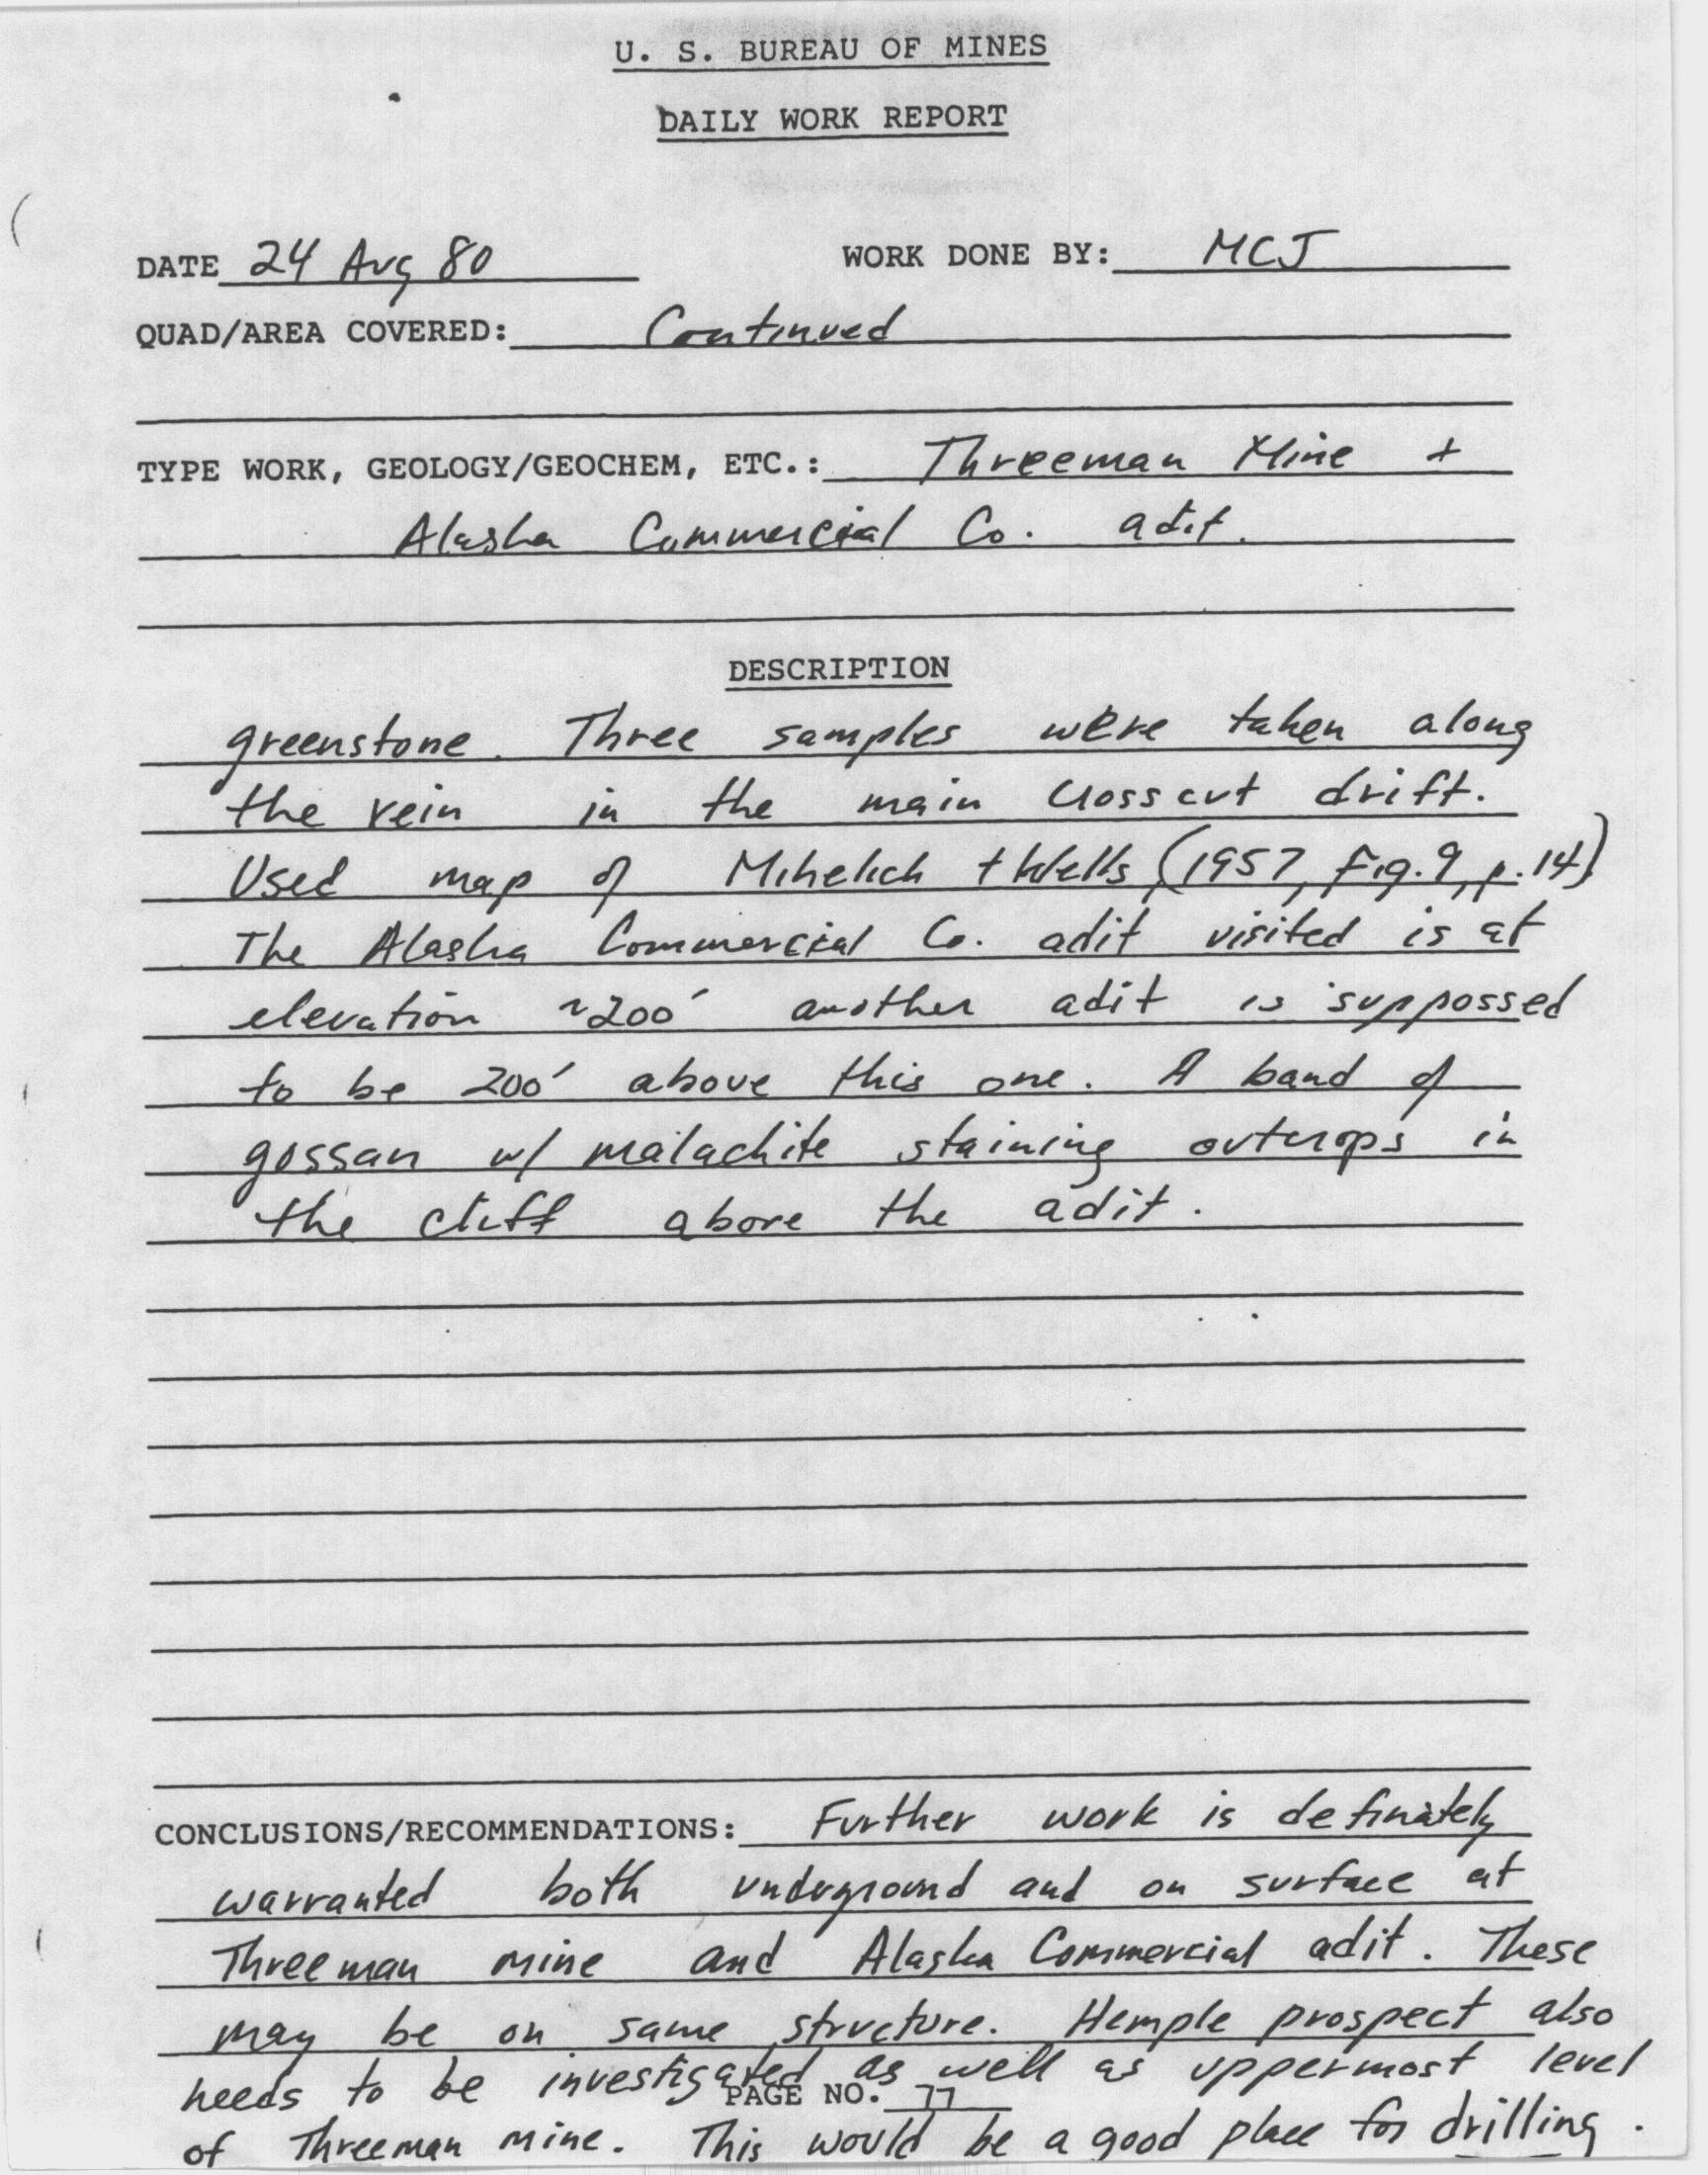 U. S. BUREAU OF MINES
DAILY WORK REPORT
DATE 24 Aug 80 WORK DONE BY: MCJ
QUAD/AREA COVERED: Continued
TYPE WORK, GEOLOGY/GEOCHEM, ETC.: Threeman Mine +
Alaska Commercial Co. adit.
DESCRIPTION
greenstone. Three samples were taken along
the vein in the main crosscut drift.
Used map of Mihelich + Wells (1957, Fig. 9, p. 14)
The Alaska Commercial Co. adit visited is at
elevation ~200' another adit is suppossed
to be 200' above this one. A band of
gossan w/ malachite staining outcrops in
the cliff above the adit.
CONCLUSIONS/RECOMMENDATIONS: Further work is definately
warranted both underground and on surface at
Threeman mine and Alaska Commercial adit. These
may be on same structure. Hemple prospect also
needs to be investigated as well as uppermost level
PAGE NO. 77
of Threeman mine. This would be a good place for drilling.